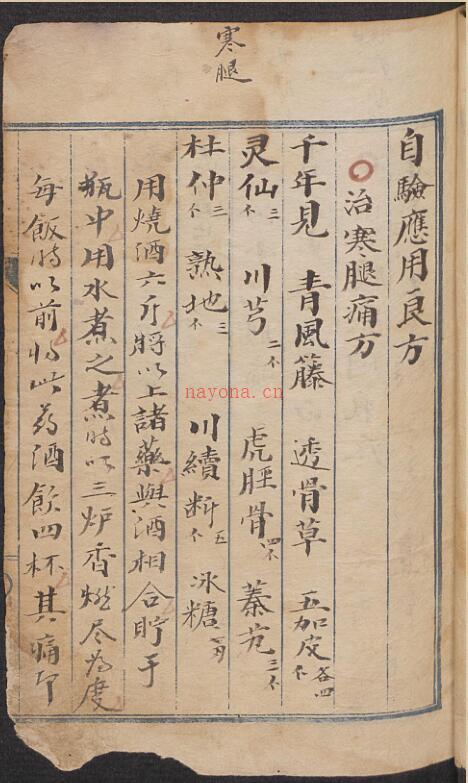 寒腿
自驗應用良方
治寒腿痛方
千年見 青風籐 透骨草 五加皮各四个
灵仙三个 川芎二个 虎脛骨四个 蓁艽三个
杜仲三个 熟地三个 川續断五个 冰糖
用燒酒六斤將以上諸藥與酒相合貯于
瓶中用水煮之煮時以三炉香燃尽为度
每飯時以前将此药酒飲四杯其痛即
nayona.cn